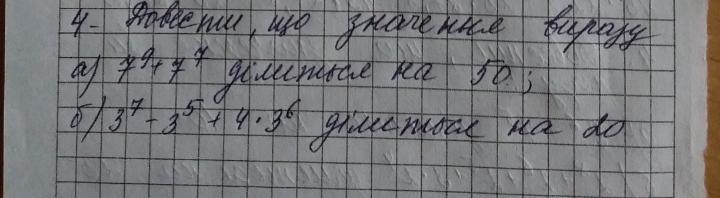 4. Довести, що значення виразу
а) 7⁹+7⁷ ділиться на 50;
б) 3⁷-3⁵+4·3⁶ ділиться на 20